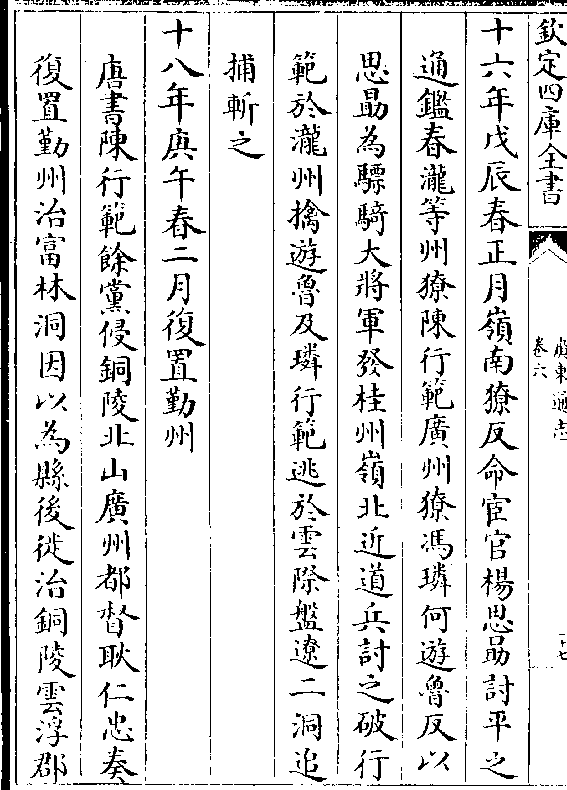 欽定四庫全書
廣東通志
卷六
十七
十六年戊辰春正月嶺南獠反命宦官楊思勗討平之
通鑑春瀧等州獠陳行範廣州獠馮璘何遊魯反以
思勗為驃騎大將軍發桂州嶺北近道兵討之破行
範於瀧州擒遊魯及璘行範逃於雲際盤遼二洞追
捕斬之
十八年庚午春二月復置勤州
唐書陳行範餘黨侵銅陵北山廣州都督耿仁忠奏
復置勤州治富林洞因以為縣後徙治銅陵雲浮郡